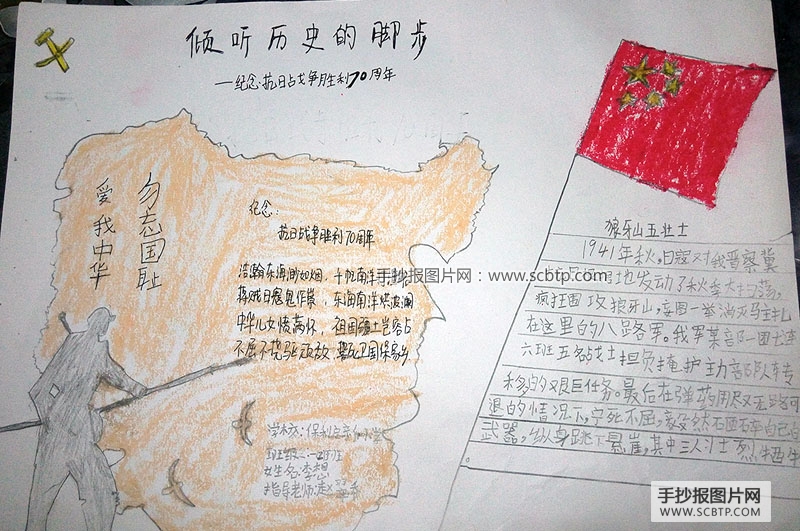 倾听历史的脚步
—纪念抗日占戈争胜利70周年
勿忘国耻
爱我中华
纪念:
抗日战争胜利70周年
浩瀚东海 烟,十帆南洋
东海南洋
中华儿女 满怀, 祖国疆土岂容占
不屈不挠 誓死卫国保家乡
手抄报图片网:www.scbtp.com
学校:保利
班级:一班
女生名:李想
指导老师:赵
狼牙山五壮士
1941年秋,日寇对我晋察冀
地发动了秋季大扫荡,
疯狂围攻狼牙山,妄图一举消灭 主扎
在这里的八路军。我军某部 一团七连
六班五名战士担负掩护主部队车专
移的艰巨任务。最后在弹药用尽又无路可
退的情况下,宁死不屈,毅然石匝碎自己白
武器,纵身跳下悬崖,其中三人 烈牺牲
手抄报图片网
WWW.SCBTP.COM